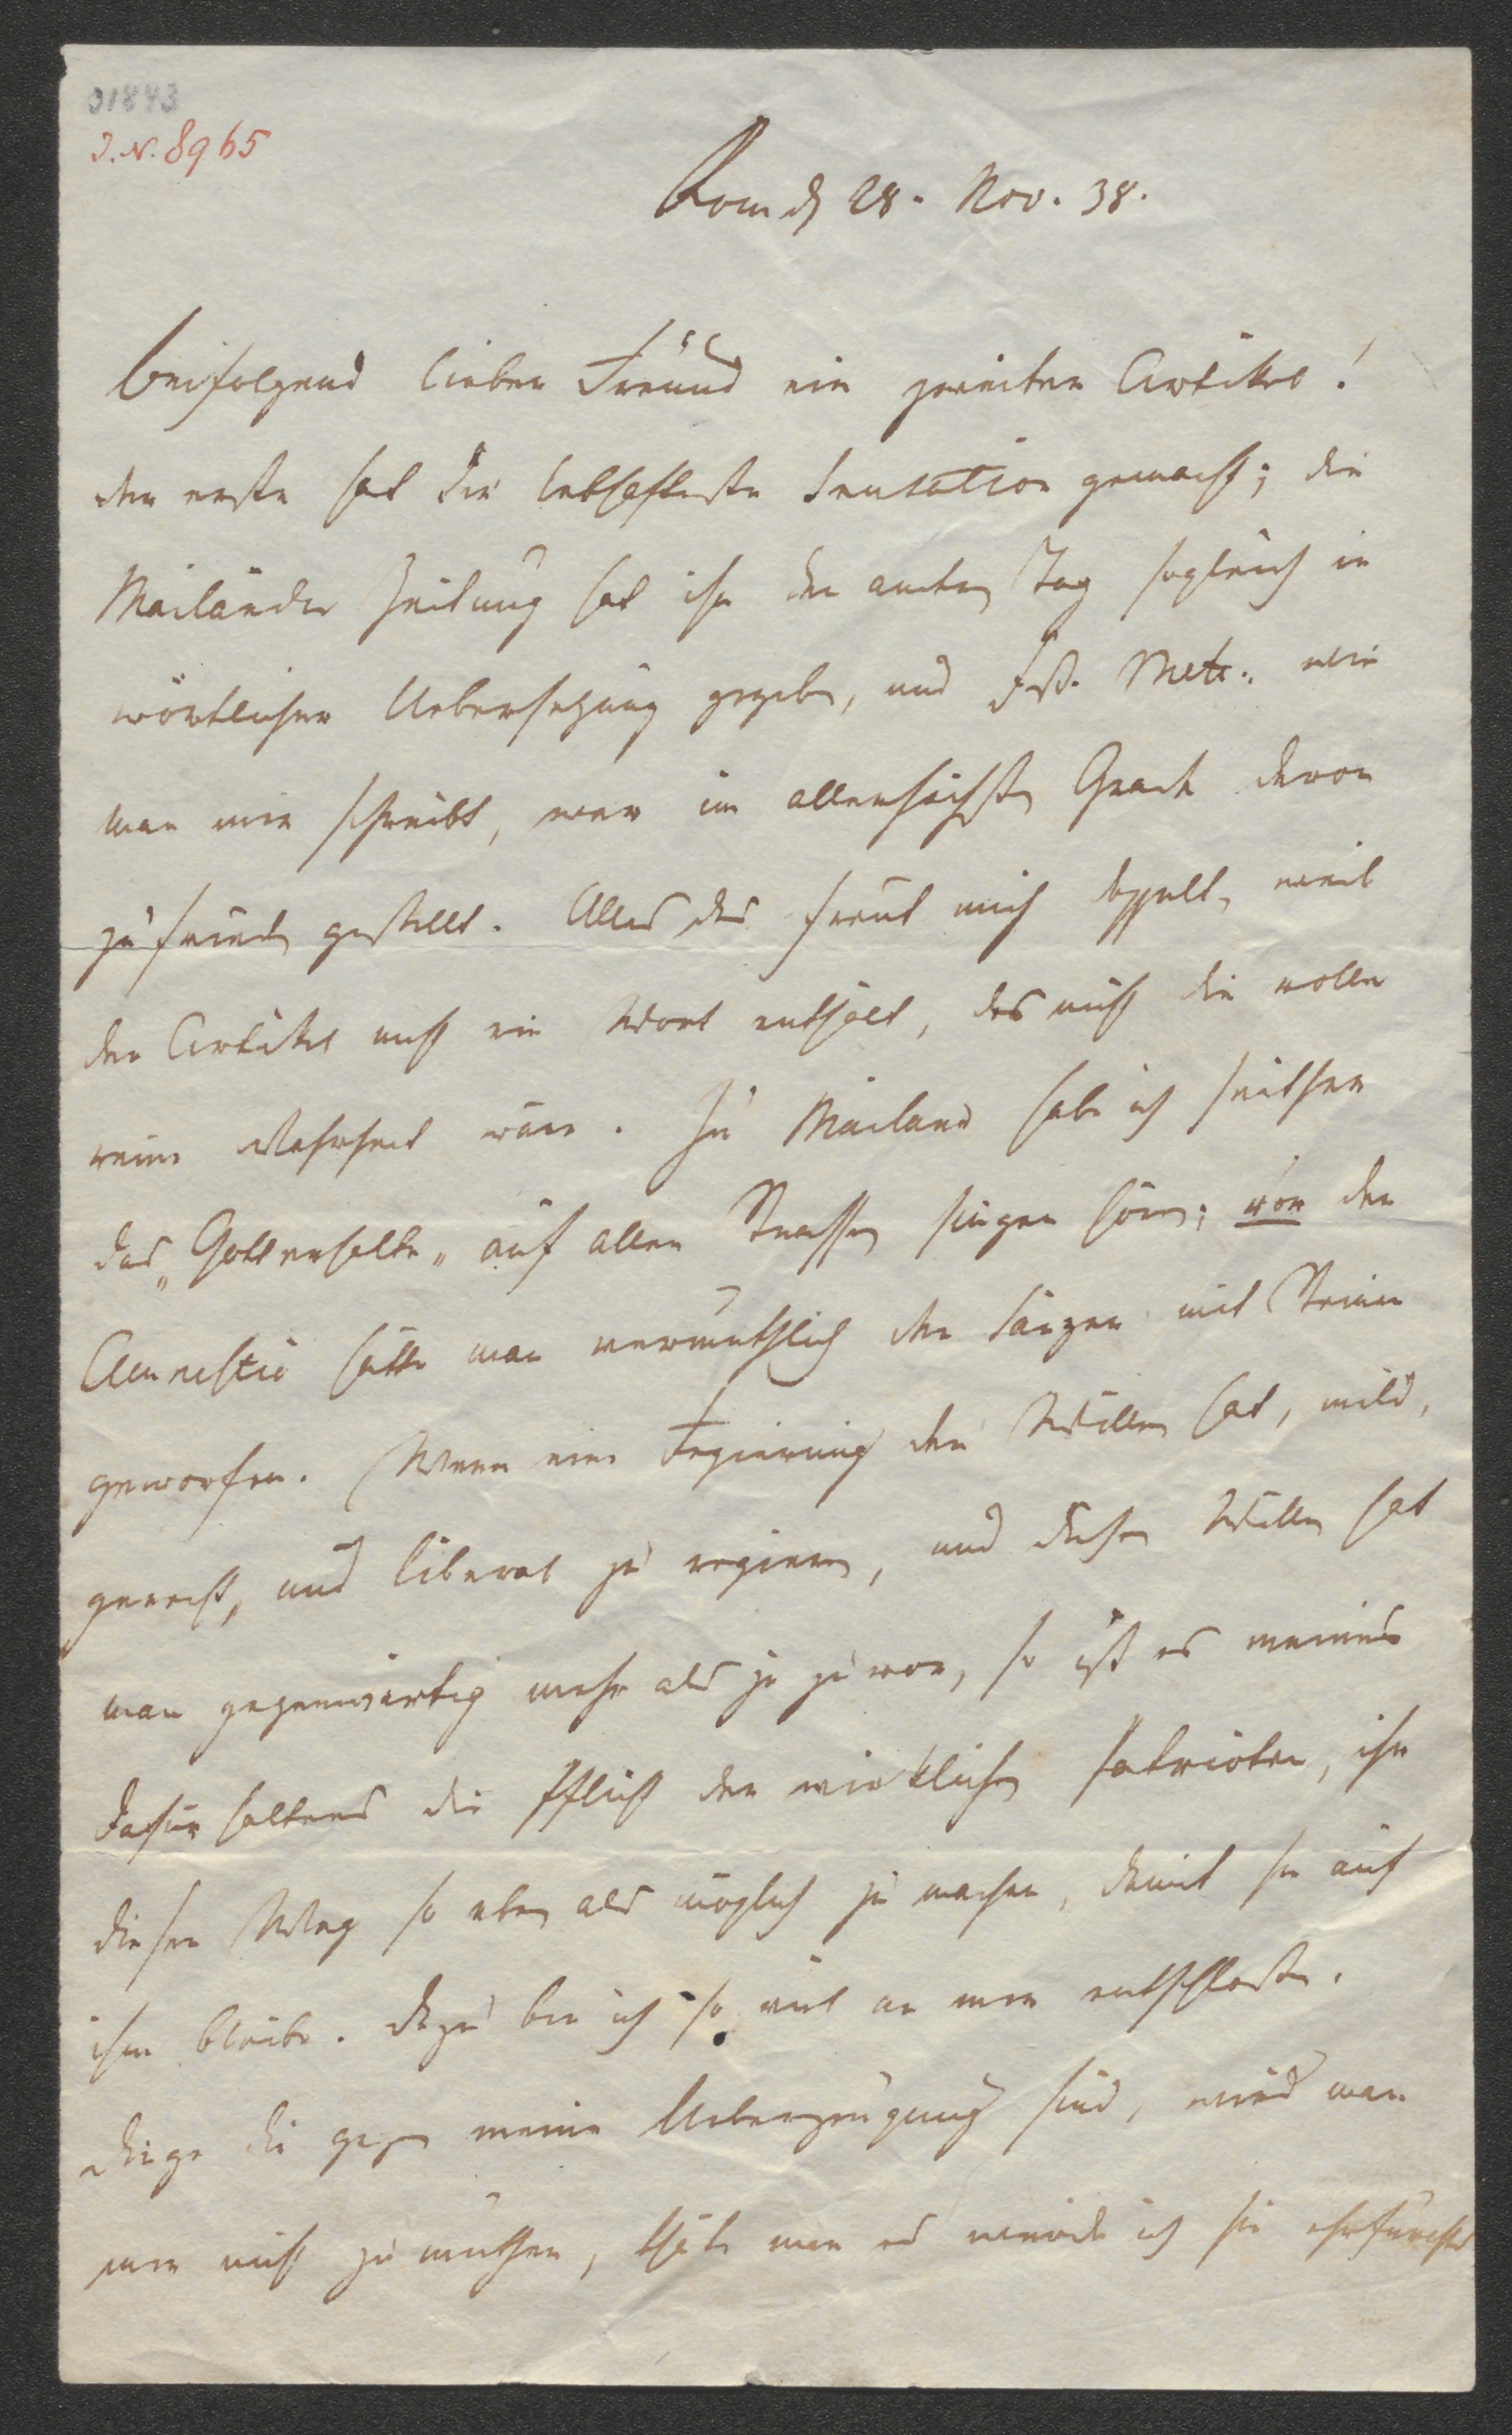 01843
J. N. 8965
Rom d 28. Nov. 38.
Beifolgend lieber Freund ein zweiter Artikel!
der erste hat die lebhafteste Sensation gemacht; die
Mailänder Zeitung hat ihn den andern Tag sogleich in
wörtlicher Uebersetzung gegeben, und Fst. Mett. wie
man mir schreibt, war im allerhöchsten Grade davon
zufrieden gestellt. Alles das freut mich doppelt, weil
der Artikel nicht ein Wort enthält, das nicht die volle
reine Wahrheit wäre. In Mailand habe ich seither
das „Gott erhalte" auf allen Strassen singen hören; vor der
Amnestie hätte man vermuthlich den Sänger mit Steinen
geworfen. Wenn eine Regierung den Willen hat, mild,
gerecht, und liberal zu regieren, und diesen Willen hat
man gegenwärtig mehr als je zuvor, so ist es meines
Dafürhaltens die Pflicht der wirklichen Patrioten, ihr
diesen Weg so eben als möglich zu machen, damit sie auf
ihm bleibe. Dazu bin ich so viel an mir entschlossen.
Dinge die gegen meine Ueberzeugung sind, wird man
mir nicht zu muthen, thäte man es würde ich sie ehrfurchts